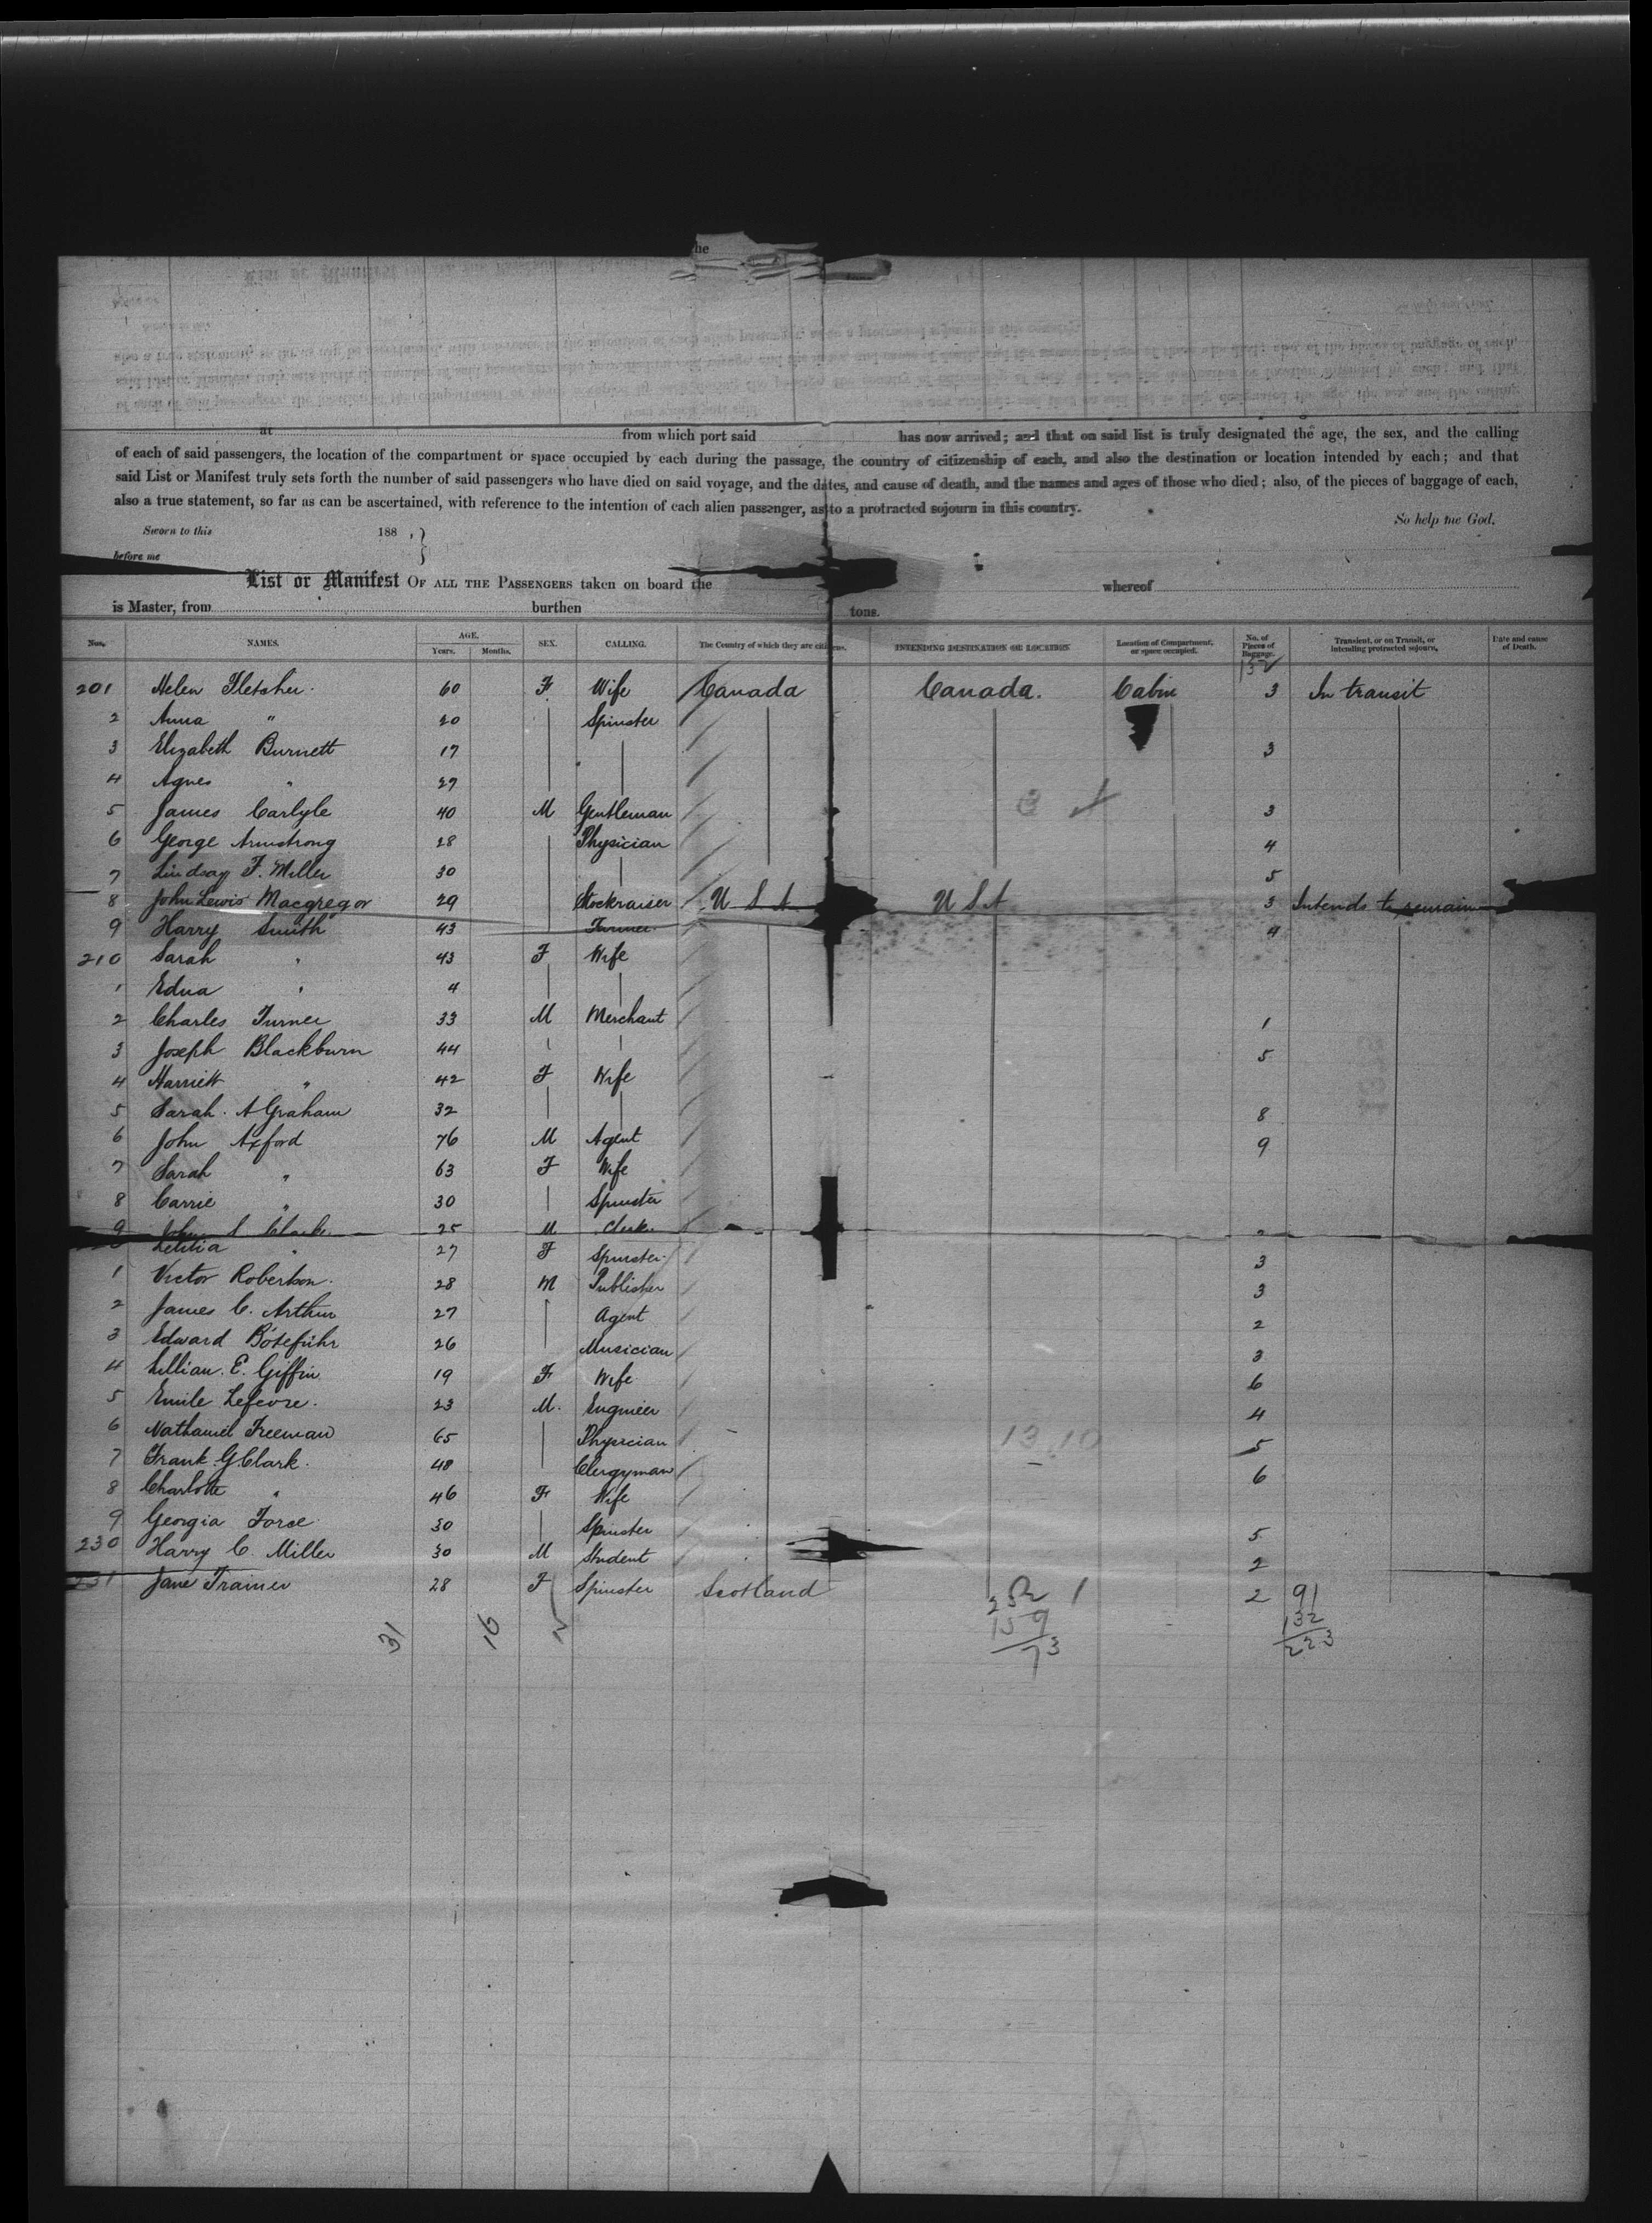 he
at from which port said has now arrived; and that on said list is truly designated the age, the sex, and the calling
of each of said passengers, the location of the compartment or space occupied by each during the passage, the country of citizenship of each, and also the destination or location intended by each; and that
said List or Manifest truly sets forth the number of said passengers who have died on said voyage, and the dates, and cause of death, and the names and ages of those who died; also, of the pieces of baggage of each,
also a true statement, so far as can be ascertained, with reference to the intention of each alien passenger, as to a protracted sojourn in this country.
So help me God.
Sworn to this 188 , }
before me
List or Manifest OF ALL THE PASSENGERS taken on board the whereof
is Master, from burthen tons.
Nos. NAMES. AGE. Years. Months. SEX. CALLING. The Country of which they are citizens. INTENDING DESTINATION OR LOCATION Location of Compartment, or space occupied. No. of Pieces of Baggage. Transient, or on Transit, or intending protracted sojourn. Date and cause of Death.
132
201 Helen Fletcher. 60 F. Wife Canada Canada. Cabin 3 In transit
2 Anna " 20 Spinster
3 Elizabeth Burnett 17 3
4 Agnes " 27
5 James Carlyle 40 M Gentleman 3
6 George Armstrong 28 Physician 4
7 Lindsay F. Miller 30 5
8 John Lewis Macgregor 29 Stockraiser U S A U S A 3 Intends to remain
9 Harry Smith 43 Farmer 4
210 Sarah " 43 F Wife
1 Edna " 4
2 Charles Turner 33 M Merchant 1
3 Joseph Blackburn 44 5
4 Harriett " 42 F Wife
5 Sarah A Graham 32 8
6 John Axford 76 M Agent 9
7 Sarah " 63 F Wife
8 Carrie " 30 Spinster
9 John S Clark 25 M Clerk
Letitia " 27 F Spinster 3
1 Victor Robertson. 28 M Publisher 3
2 James C. Arthur 27 Agent 2
3 Edward Bösefuhr 26 Musician 3
4 Lillian. E. Giffin 19 F Wife 6
5 Emile Lefevre. 23 M. Engineer 4
6 Nathaniel Freeman 65 Physician 13 10 5
7 Frank. G. Clark. 48 Clergyman 6
8 Charlotte " 46 F Wife
9 Georgia Force 30 Spinster 5
230 Harry C. Miller 30 M Student 2
231 Jane Trainer 28 F Spinster Scotland 2 91
132
223
31 16
159
73